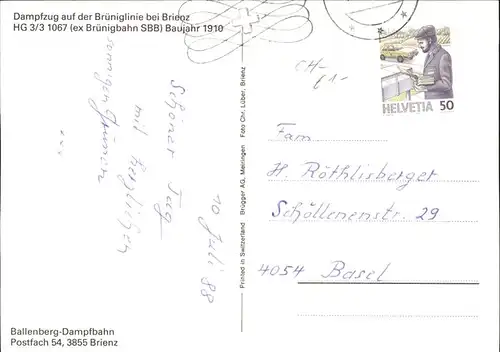 Dampfzug auf der Brüniglinie bei Brienz
HG 3/3 1067 (ex Brünigbahn SBB) Baujahr 1910
CH-
-1.-
HELVETIA 50
10 Juli 88
Schöner Tag
mit herzlichen
sonnigen Grüssen
...
Printed in Switzerland Brügger AG, Meiringen Foto Chr. Lüber, Brienz
Fam
H. Röthlisberger
Schöllenenstr. 29
4054 Basel
Ballenberg-Dampfbahn
Postfach 54, 3855 Brienz